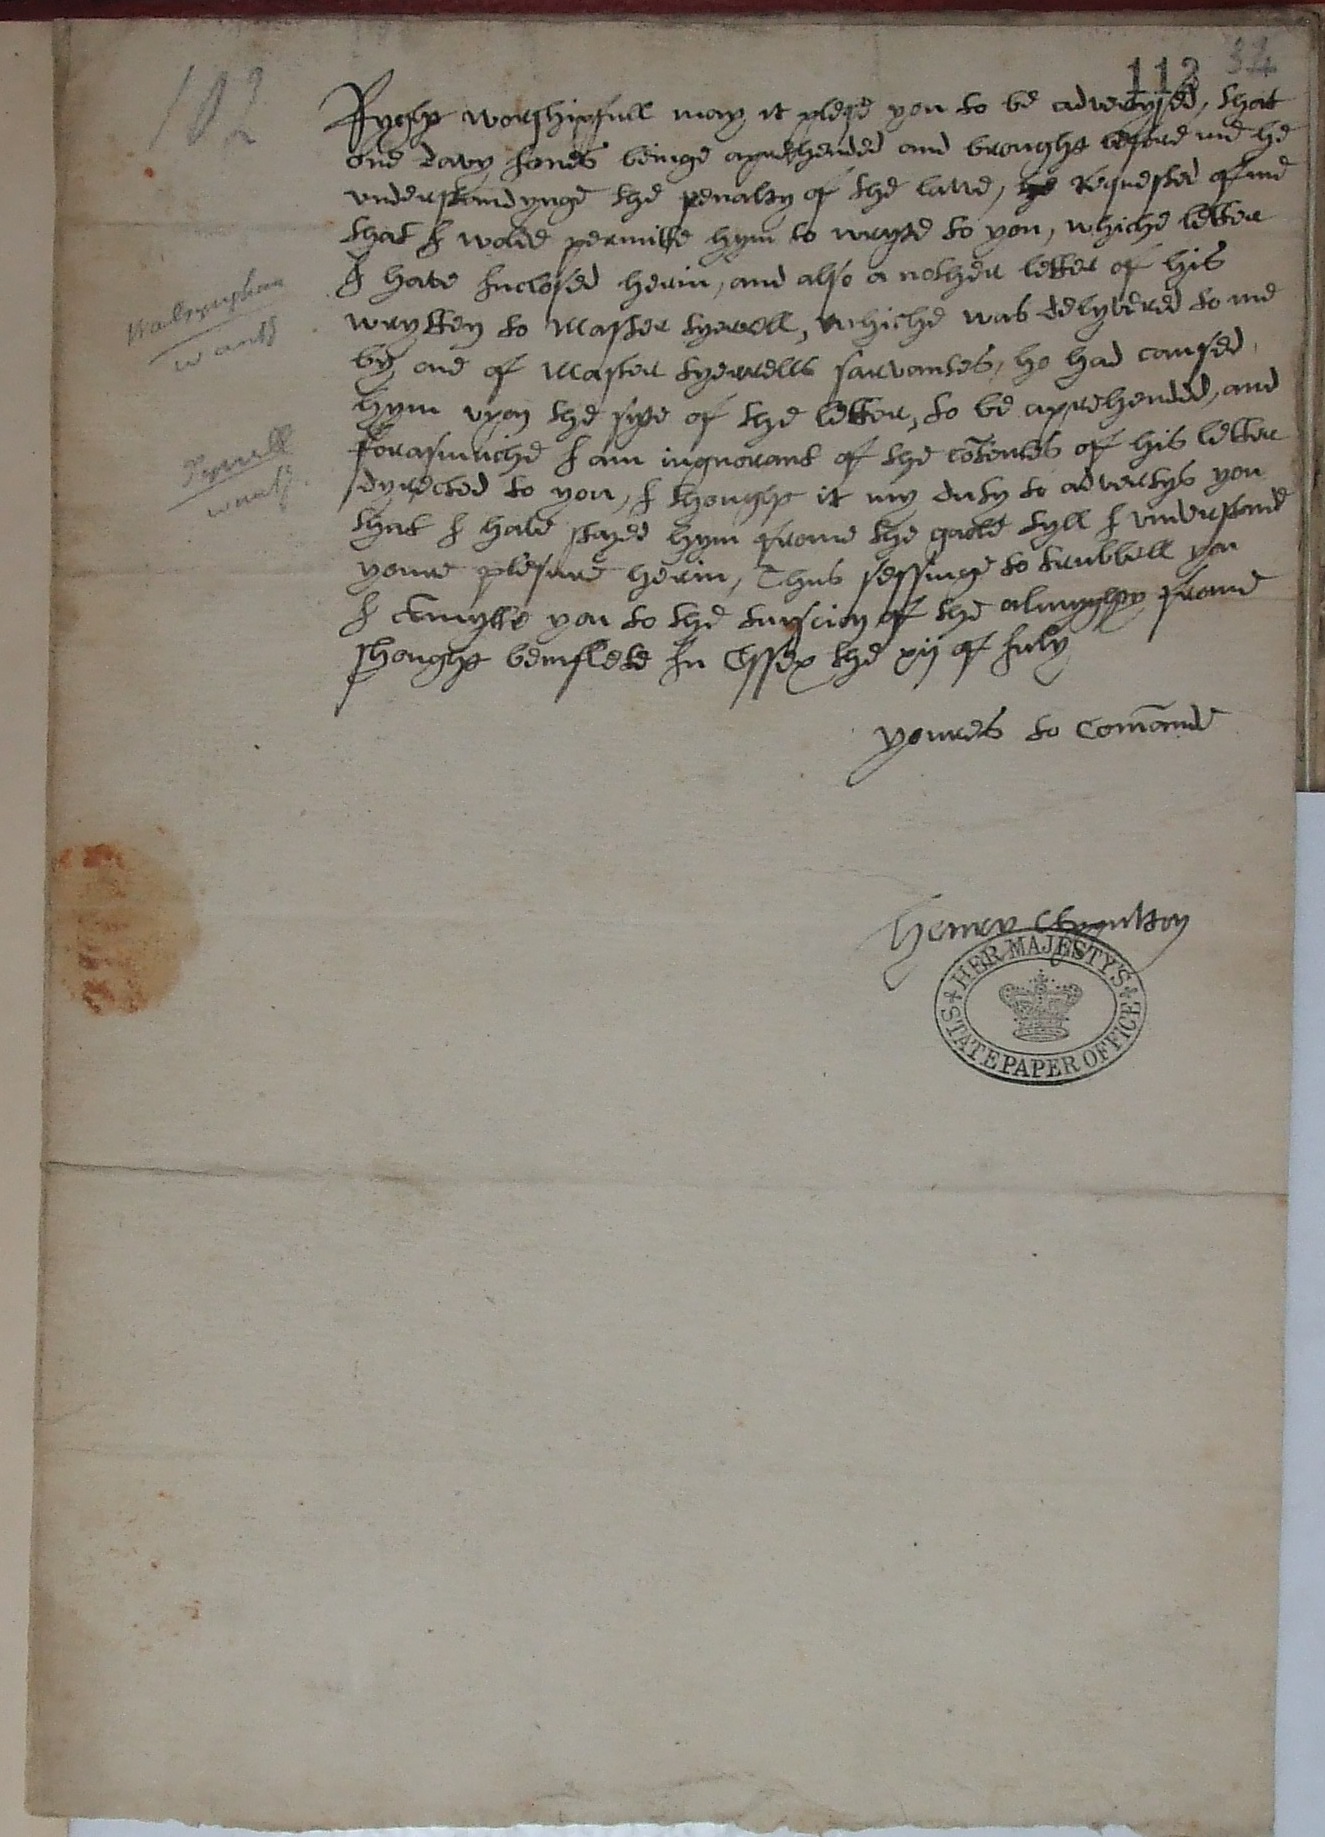 112 34
102
Ryght worshipfull may it plese you to be advertysed, that
one davy Jones beinge aprehended and brought before me he
understandynge the penalty of the lawe, he Requested of me
that I wolde permitte hym to wryte to you, whiche letter
I have Inclosed herin, and also a nother letter of his
wrytten to Master tyrrell, whiche was delyvered to me
by one of Master tyrrells sarvantes, ho had caused
hym upon the syte of the letter, to be aprehended, and
forasmuche I am ingnorant of the cotentes of his letter
dyrected to you, I thought it my duty to advertys you
that I have stayde hym frome the gaole tyll I understande
youre plesure herin, Thus sessinge to trubbell you
I Comytte you to the tuyscion of the almyghty frome
shought bemflete In Essex the xij of July
Walsyngham
wants
Tyrrell
wants
youres to Comande
Henry
HER MAJESTY'S
STATE PAPER OFFICE